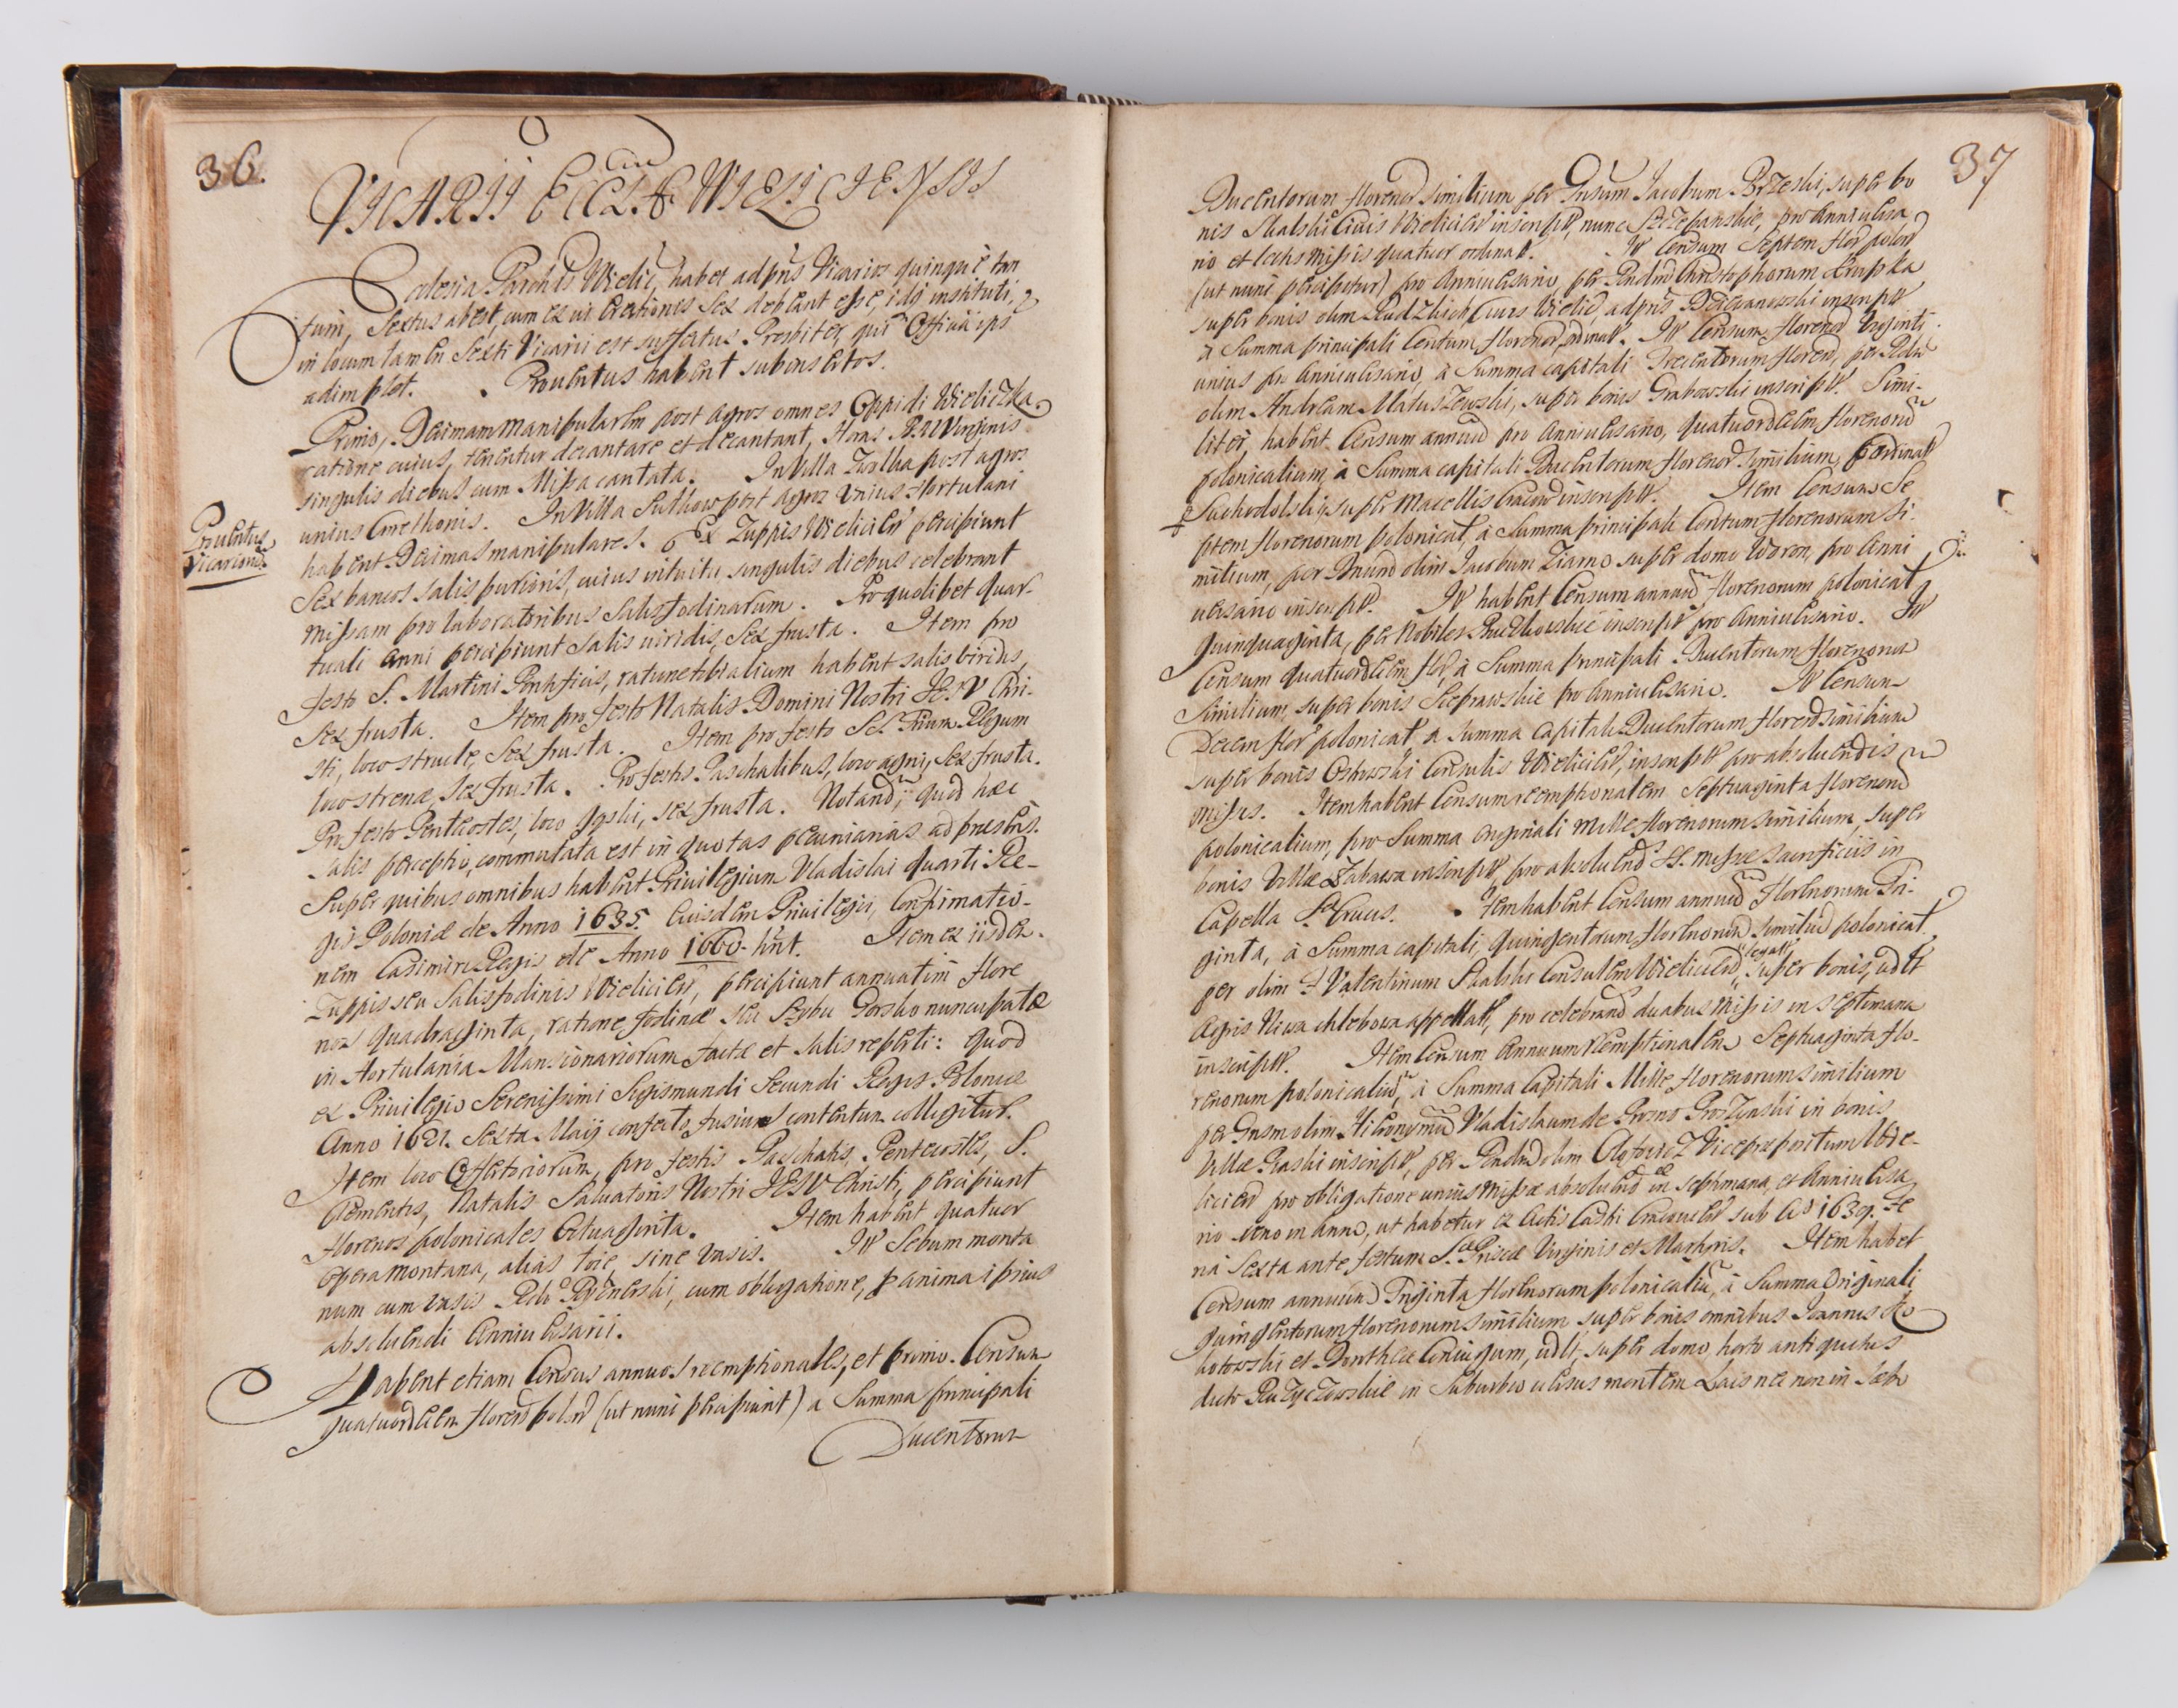 36.
VICARII ECCLÆ WIELICIENSIS
Ecclesia Parochlis Wielic, habet ad pñs Vicarios quinque tan
tum, Sextus abest, cum ex vi Erectionis Sex debeant esse, idq instituti,
in locum tamen Sexti Vicarii est suffectus Presbiter, qui Officiũ ips
adimplet. Prouentus habent subinsertos.
Primo, Decimam manipularem post agros omnes Oppidi Wieliczka,
ratione cuius, tenentur decantare et decantant, Horas B. M Virginis
singulis diebus cum Missa cantata. In Villa post agros
unius Cmethonis. In Villa Sulkow post agros Unius Hortulani
Prouentus
Vicariorũ
habent Decimas manipulares. Ex Zuppis Wielicien percipiunt
Sex bancos salis purioris, cuius intuitu, singulis diebus celebrant
Missam pro laboratoribus Salisfodinarum. Pro quolibet quar-
tuali Anni percipiunt Salis viridis, Sex frusta. Item pro
festo S. Martini Pontificis, ratione tibialium habent salis viridis,
Sex frusta. Item pro festo Natalis Domini Nostri JESV Chri-
sti, loco structe, Sex frusta. Item pro festo SS. Trium Regum
loco strenæ, Sex frusta. Pro festis Paschalibus, loco agni, Sex frusta.
Pro festo Pentecostes, loco, sex frusta. Notand, quod hæc
salis perceptio, commutata est in quotas pecuniarias ad præsens.
Super quibus omnibus habent Priuilegium Vladislai quarti Re-
gis Poloniæ de Anno 1635. Eiusdem Priuilegii, Confirmatio-
nem Casimiri Regis de Anno 1660 hñt. Item ex iisdem
Zuppis seu Salisfodinis Wielicien, percipiunt annuatim flore
nos quadraginta, ratione fodinæ seu Szybu Gorsko nuncupatæ
in Hortulania Mansionariorum factæ et salis reperti: quod
ex Priuilegio Serenissimi Sigismundi Secundi Regis Poloniæ
Anno 1621. Sexta Maij confecto, fusius contentum colligitur.
Item loco Offertoriorum, pro festis Paschatis, Pentecostes, S.
Clementis, Natalis Saluatoris Nostri JESV Christi, percipiunt
florenos polonicales Octuaginta. Item habent quatuor
opera montana, alias sine vasis. Itt Sebum monta
num cum vasis, cum obligatione, p anima ipsius
absoluendi Anniuersarii.
Habent etiam Census annuos reemptionales, et primo. Censum
quatuordecim floren polon (ut nunc percipiunt) a Summa principali
Ducentorum
37
Ducentorum floreno similium per Gnsum Jacobum Brzeski, super bo
nis Skalski Ciuis Wielicien inscript, nunc Szczepanskie, pro Anniuersa
rio et lectis missis quatuor ordinat. Itt Censum Septem flor polon
(ut nunc percipitur) pro Anniuersario, per Rndum Christophorum Krupka
super bonis olim Rudzkich Ciuis Wielic, ad pñs inscript
a Summa principali Centum florenor, ordinat. Itt Censum floreno Viginti
unius pro Anniuersario, a Summa capitali Trecentorum floren, per Rdum
olim Andream Matuszewski, super bonis Grabowski inscript. Simi-
liter, habent Censum annuũ pro Anniuersario, quatuordecim florenorũ
polonicalium, a Summa capitali Ducentorum florenor similium, ordinat
Suchodolski, super Macellis Cracow inscript. Item Censum Se
ptem florenorum polonicat, a Summa principali Centum florenorum si-
milium, per olim Jacobum Ziarno super domo, pro Anni
uersario inscript. Itt habent Censum annuũ florenorum polonicat
Quinquaginta, per Nobiles inscript pro Anniuersario. Itt
Censum quatuordecim flor, a Summa principali Ducentorum florenorum
similium, super bonis Sieprawskie pro Anniuersario. Itt Censum
Decem flor polonicat, a Summa Capitali Ducentorum floren similium
super bonis Ostrowski Consulis Wielicien, inscript pro absoluendis
missis. Item habent Censum reemptionalem Septuaginta florenorũ
polonicalium, pro Summa originali Mille florenorum similium, super
bonis Villæ Zabawa inscript, pro absoluend SS. missæ sacrificiis in
Capella S. Crucis. Item habent Censum annuũ florenorum Tri-
ginta, a Summa capitali quingentorum florenorum similiũ polonicat
per olim Valentinum Skalski Consulem Wielicien, legat super bonis, ad
agris Niwa chlebowa appellat, pro celebrand duabus missis in septimana
inscript. Item Censum Annuum reemptionalem Septuaginta flo-
renorum polonicaliũ, a Summa Capitali Mille florenorum similium
per Gnsm olim Hieronymũ Vladislaum de in bonis
Villæ inscript, per Rendum olim Viceprepositum Wie-
licien pro obligatione unius missæ absoluend in septimana, et Anniuersa
rio uno in Anno, ut habetur ex Actis Castri Cracouien sub A° 1639. Fe
ria Sexta ante festum S. Priscæ Virginis et Martyris. Item habet
Censum annuum Triginta florenorum polonicaliũ, a Summa Originali
quingentorum florenorum similium super bonis omnibus Joannis
et Dorotheæ Coniugum, super domo, horto antiquitus
dicto in Suburbio uersus montem nec non in